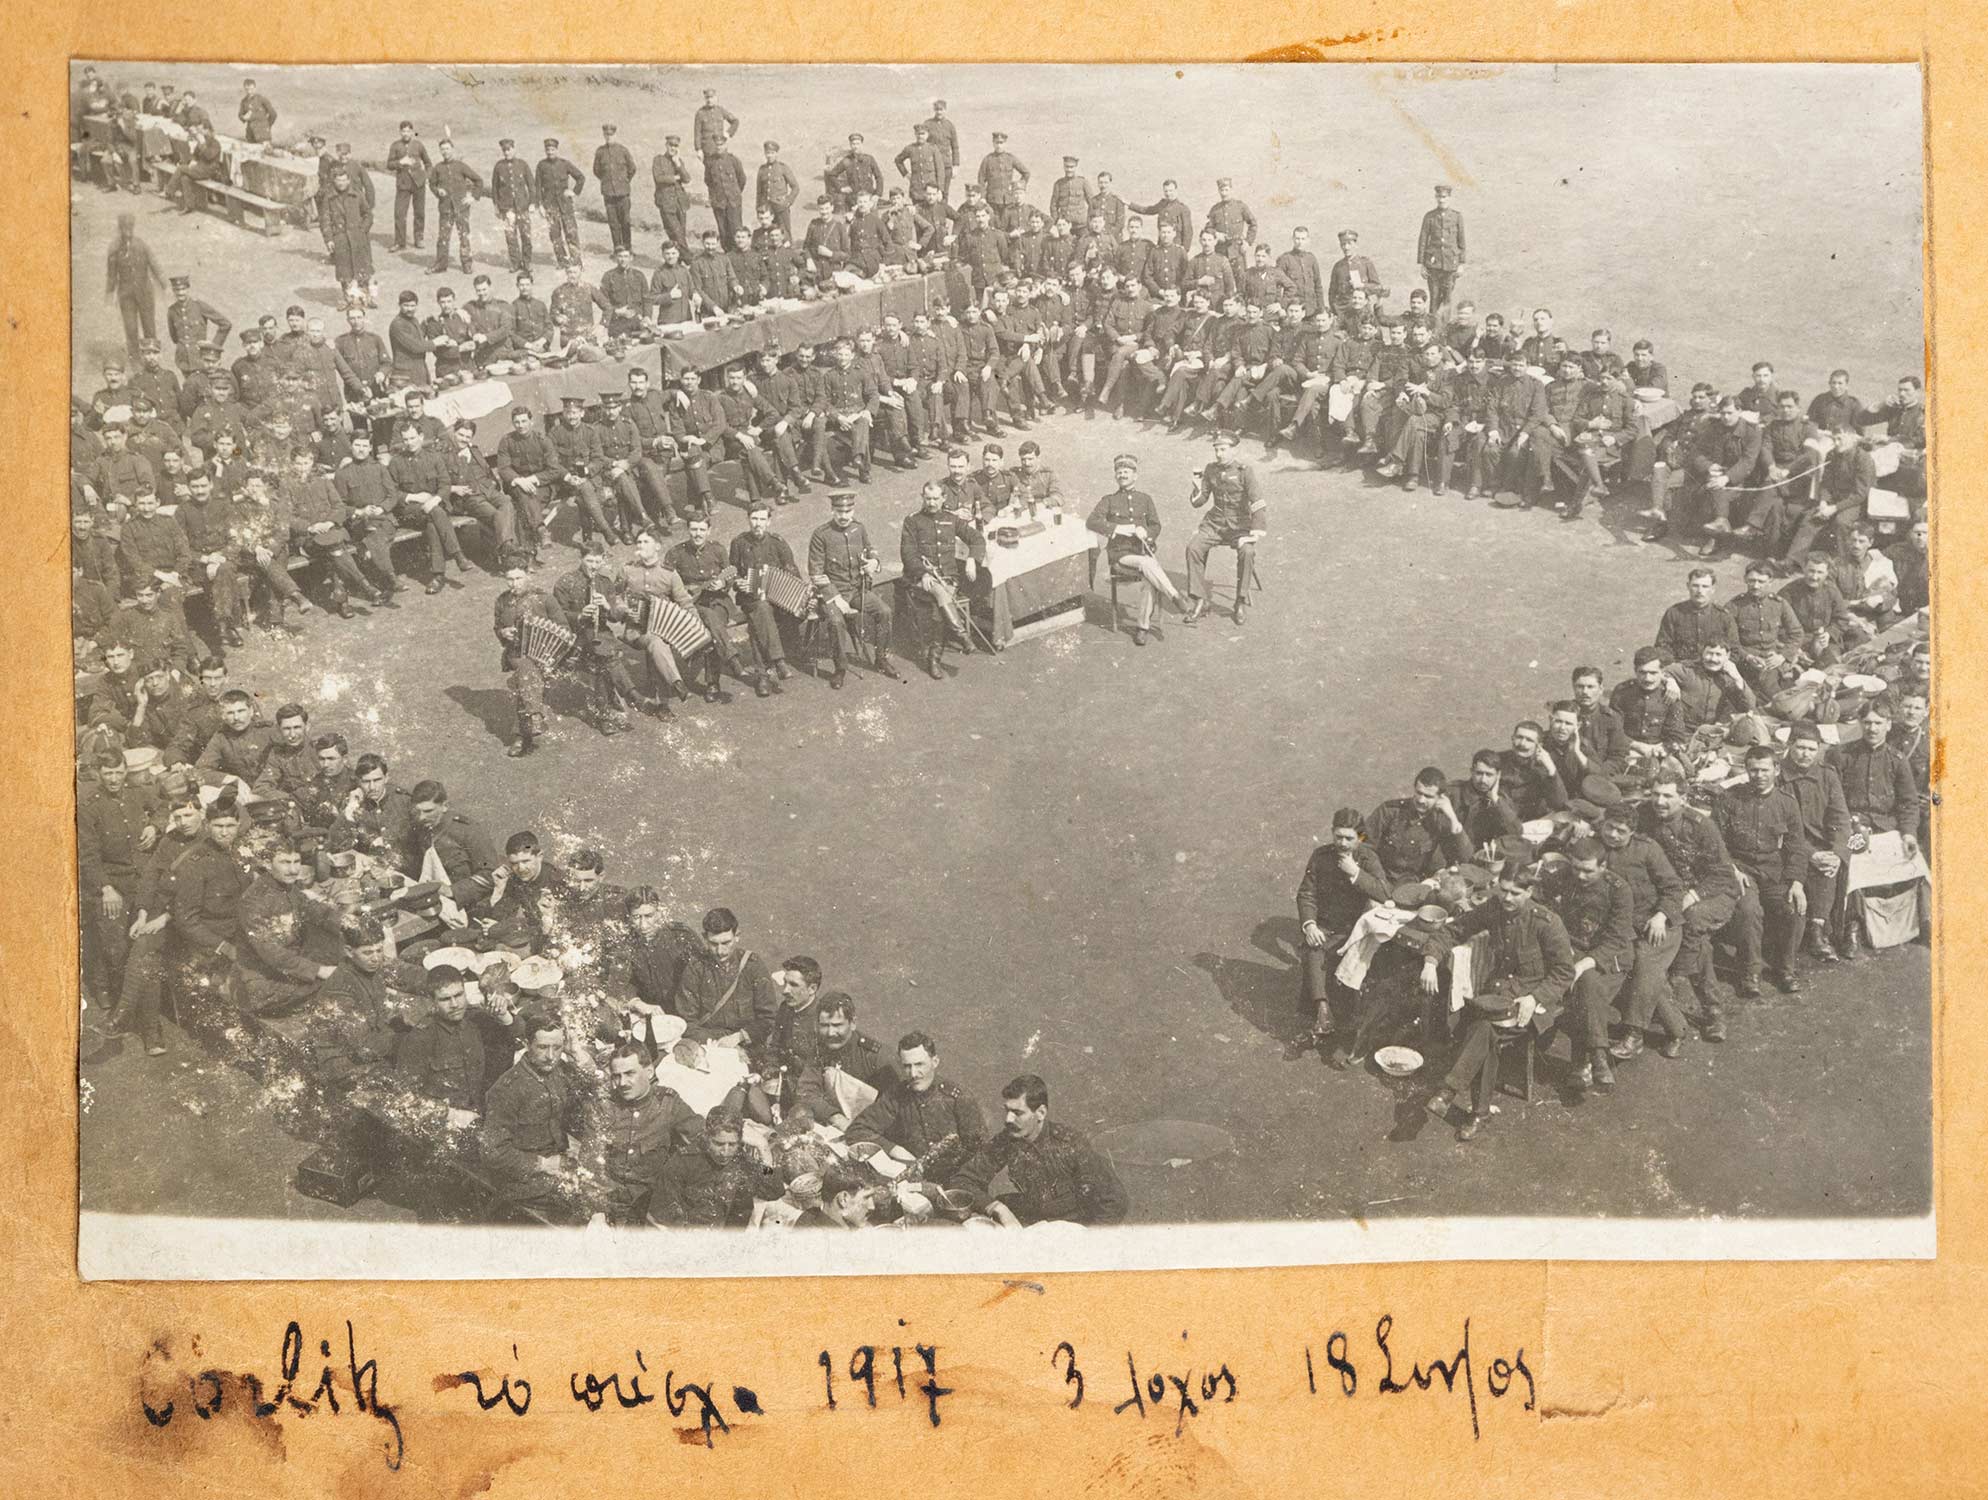 Görlitz τό πάσχα 1917 3 λοχος 18 Συντ/ος